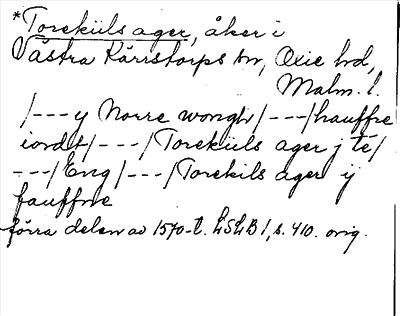 *Torekiils ager, åker i
Västra Kärrstorps sn, Oxie hd,
Malm. l.
/---y Norre wongh/---/hauffre
iordt/---/Torekiils ager j te/
---/Eng/---/Torekils ager ij
fauffne
förra delen av 1570-t. LSLB 1, s. 410. orig.